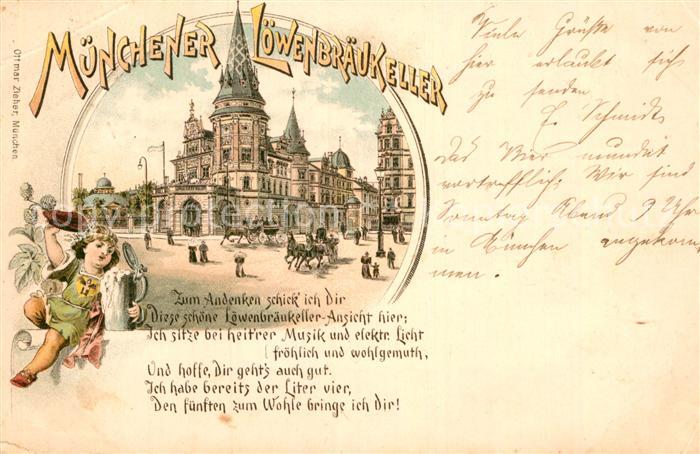 Münchener Löwenbräukeller
Ottmar Zieher, München
Zum Andenken schick' ich Dir
Diese schöne Löwenbräukeller-Ansicht hier;
Ich sitze bei heitrer Musik und elektr. Licht
(fröhlich und wohlgemuth,
Und hoffe, Dir geht's auch gut.
Ich habe bereits der Liter vier,
Den fünften zum Wohle bringe ich Dir!
Viele Grüße von
hier erlaubt sich
zu senden
E. Schmidt
Das Bier mundet
vortrefflich. Wir sind
Sonntag Abend 9 Uhr
in München angekom
men.